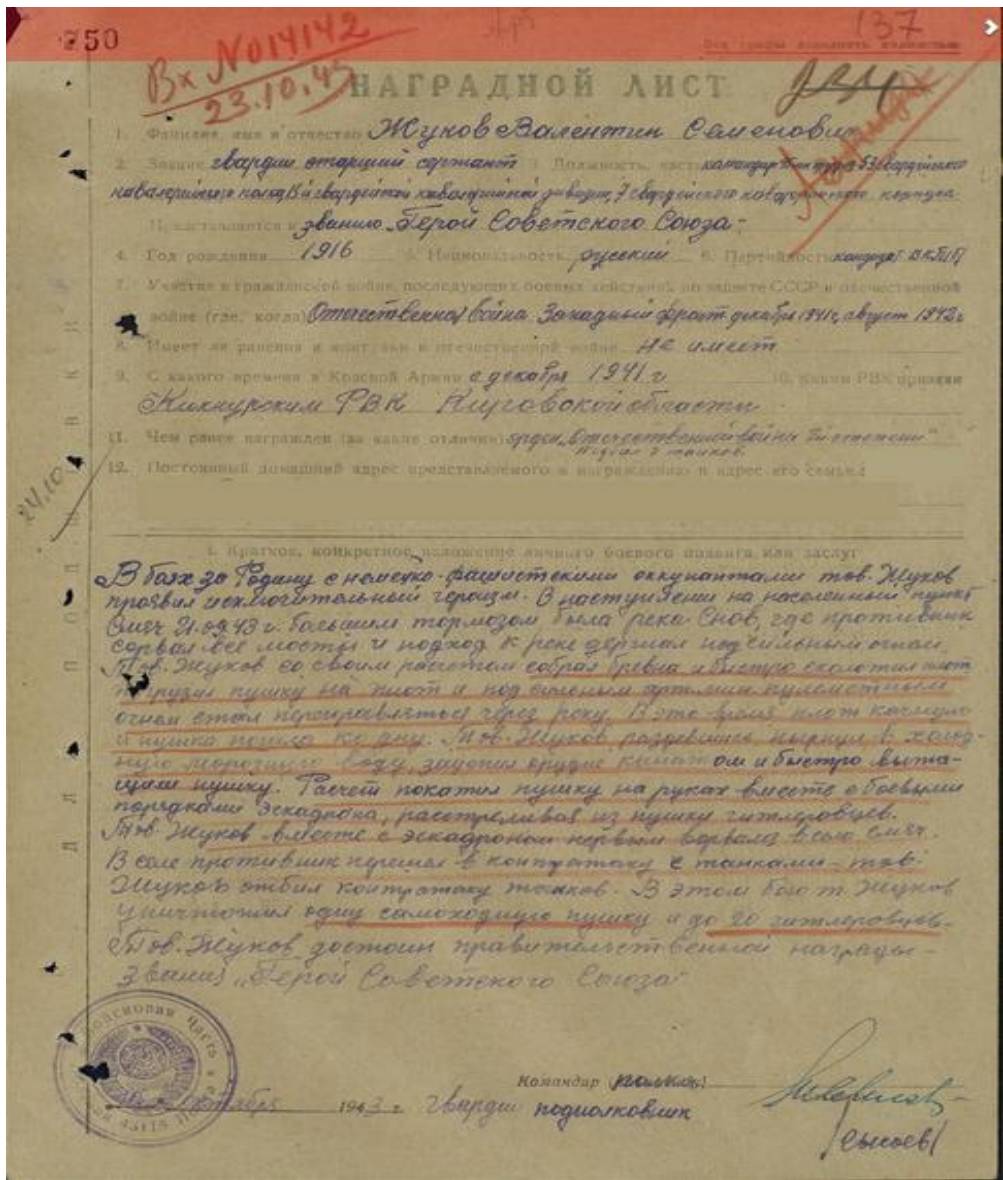 250
137
Вх N014142
23.10.43
Все графы заполнять полностью
НАГРАДНОЙ ЛИСТ
1. Фамилия, имя и отчество Жуков Валентин Семенович
2. Звание гвардии старший сержант 3. Должность, часть командир 53 гвардейского
кавалерийского полка, 15й гвардейской кавалерийской дивизии, 7 гвардейского кавалерийского корпуса
Представляется к званию "Герой Советского Союза"-
4. Год рождения 1916 5. Национальность русский 6. Партийность кандидат ВКП/б/
7. Участие в гражданской войне, последующих боевых действиях по защите СССР и отечественной
войне (где, когда) Отечественная война Западный фронт декабрь 1941г, август 1942г
8. Имеет ли ранения и контузии в отечественной войне Не имеет
9. С какого времени в Красной Армии с декабря 1941 г 10. Каким РВК призван
Кикнурским РВК Кировской области
11. Чем ранее награжден (за какие отличия) орден "Отечественной войны степени"
12. Постоянный домашний адрес представляемого к награждению и адрес его семьи
24.10
ДЛЯ ПОДШИВКИ
I. Краткое, конкретное изложение личного боевого подвига или заслуг
В боях за Родину с немецко-фашистскими оккупантами тов. Жуков
проявил исключительный героизм. В наступлении на населенный пункт
Смяч 21.09.43 г. большим тормозом была река Снов, где противник
сорвал все мосты и подход к реке держал под сильным огнем.
Тов. Жуков со своим расчетом собрал бревна и быстро сколотил плот
погрузил пушку на плот и под сильным артмин пулеметным
огнем стал переправляться через реку. В это время плот качнуло
и пушка пошла ко дну. Тов. Жуков, раздевшись, нырнул в холод-
ную морозную воду, зацепил орудие канатом и быстро выта-
щили пушку. Расчет покатил пушку на руках вместе с боевыми
порядками эскадрона, расстреливая из пушки гитлеровцев.
Тов. Жуков вместе с эскадроном первым ворвался в село Смяч.
В селе противник перешел в контратаку с танками - тов.
Жуков отбил контратаку танков. В этом бою т. Жуков
уничтожил одну самоходную пушку и до 20 гитлеровцев.
Тов. Жуков достоин правительственной награды -
звания "Герой Советского Союза"
Командир полка
октября 1943 г. Гвардии подполковник